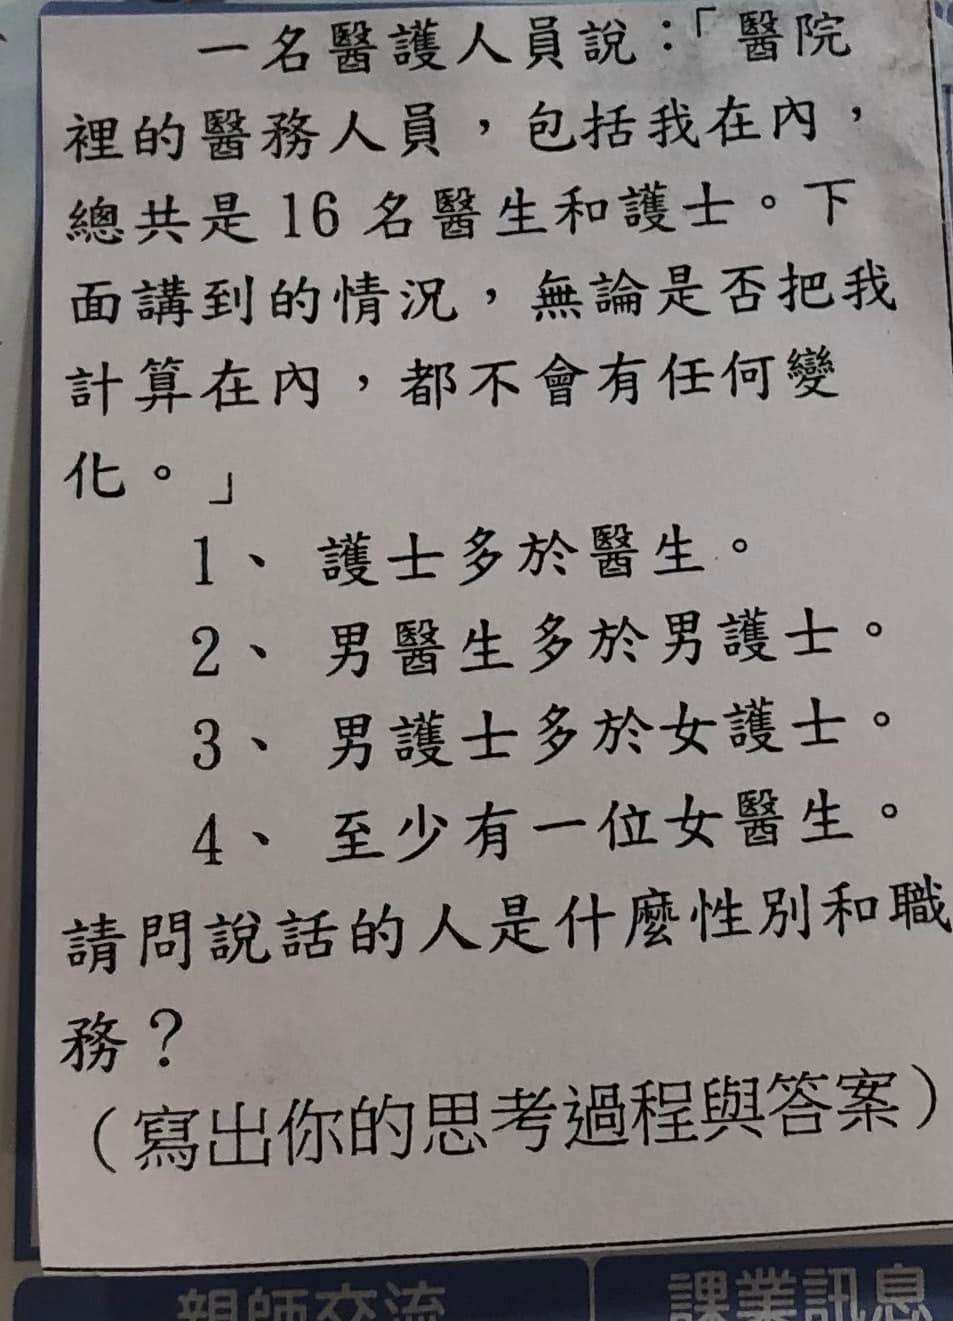 一名醫護人員說：「醫院
裡的醫務人員，包括我在內，
總共是16名醫生和護士。下
面講到的情況，無論是否把我
計算在內，都不會有任何變
化。」
1、 護士多於醫生。
2、 男醫生多於男護士。
3、 男護士多於女護士。
4、 至少有一位女醫生。
請問說話的人是什麼性別和職
務？
（寫出你的思考過程與答案）
親師交流
課業訊息